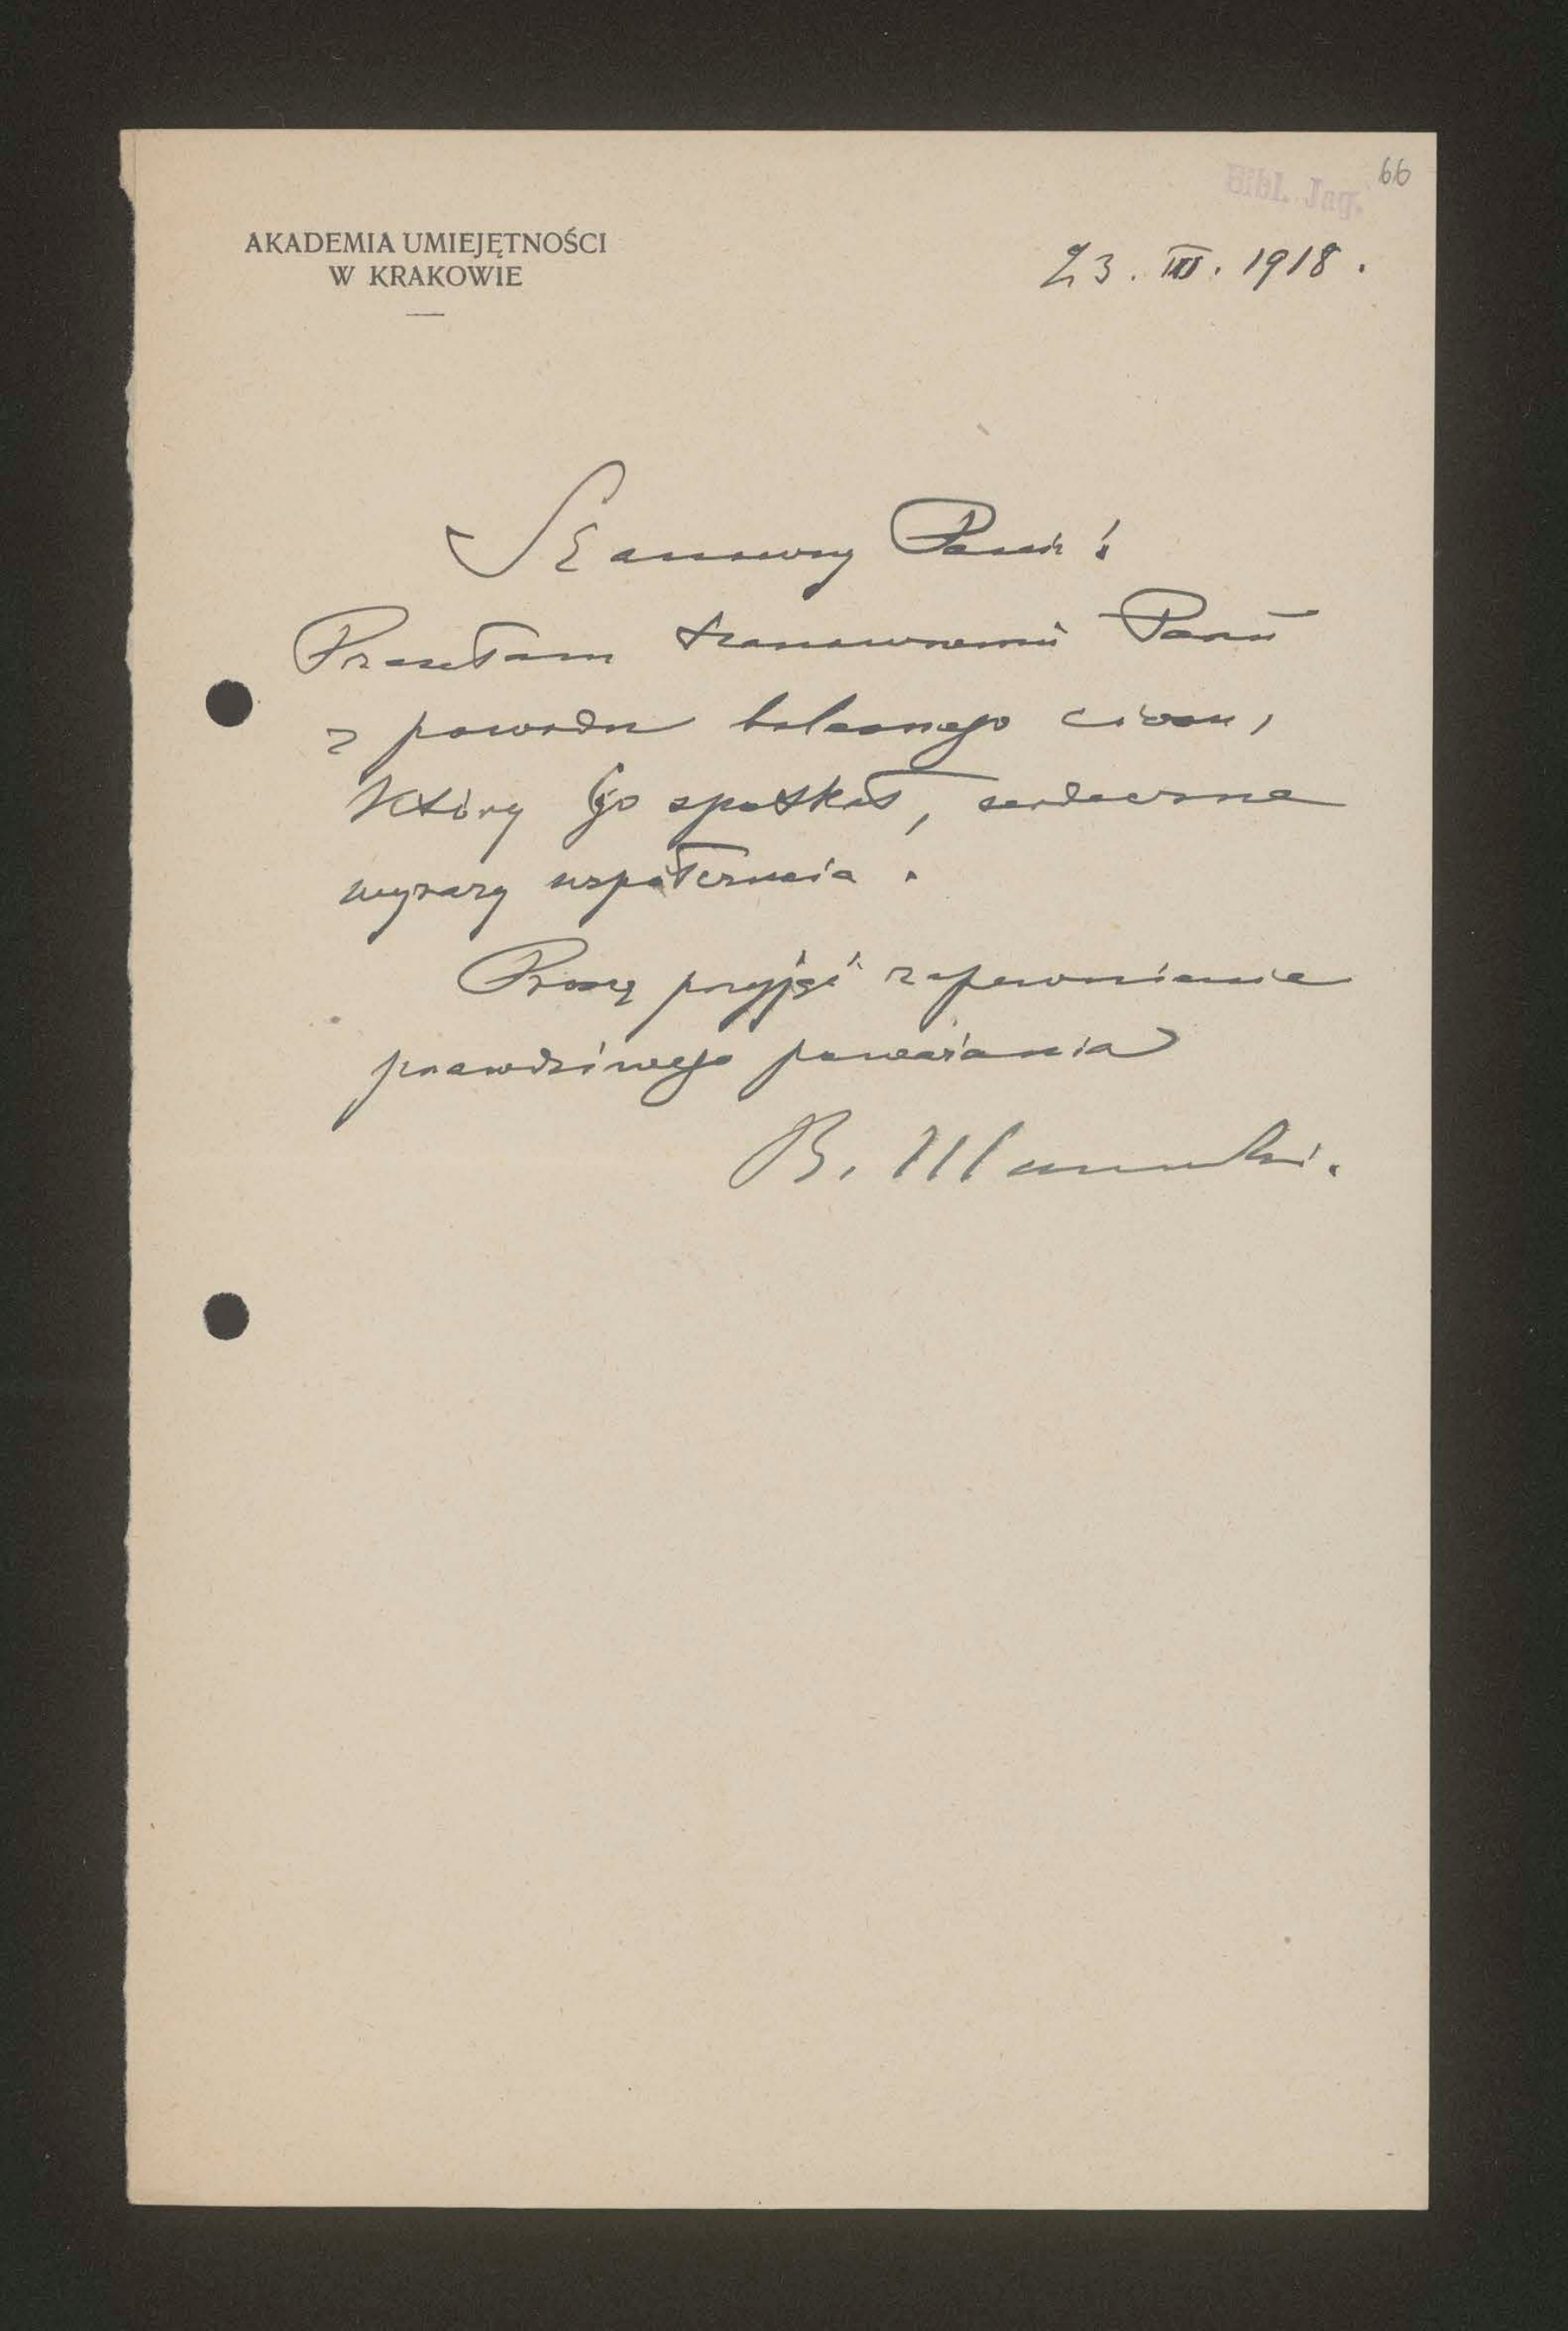 66
Bibl. Jag.
AKADEMIA UMIEJĘTNOŚCI
W KRAKOWIE
23. III. 1918.
Szanowny Panie!
Przesłam Szanownemu Panu
z powodu bolesnego ciosu,
który Go spotkał, serdeczne
wyrazy współczucia.
Proszę przyjąć zapewnienie
prawdziwego poważania
B. Ulanowski.